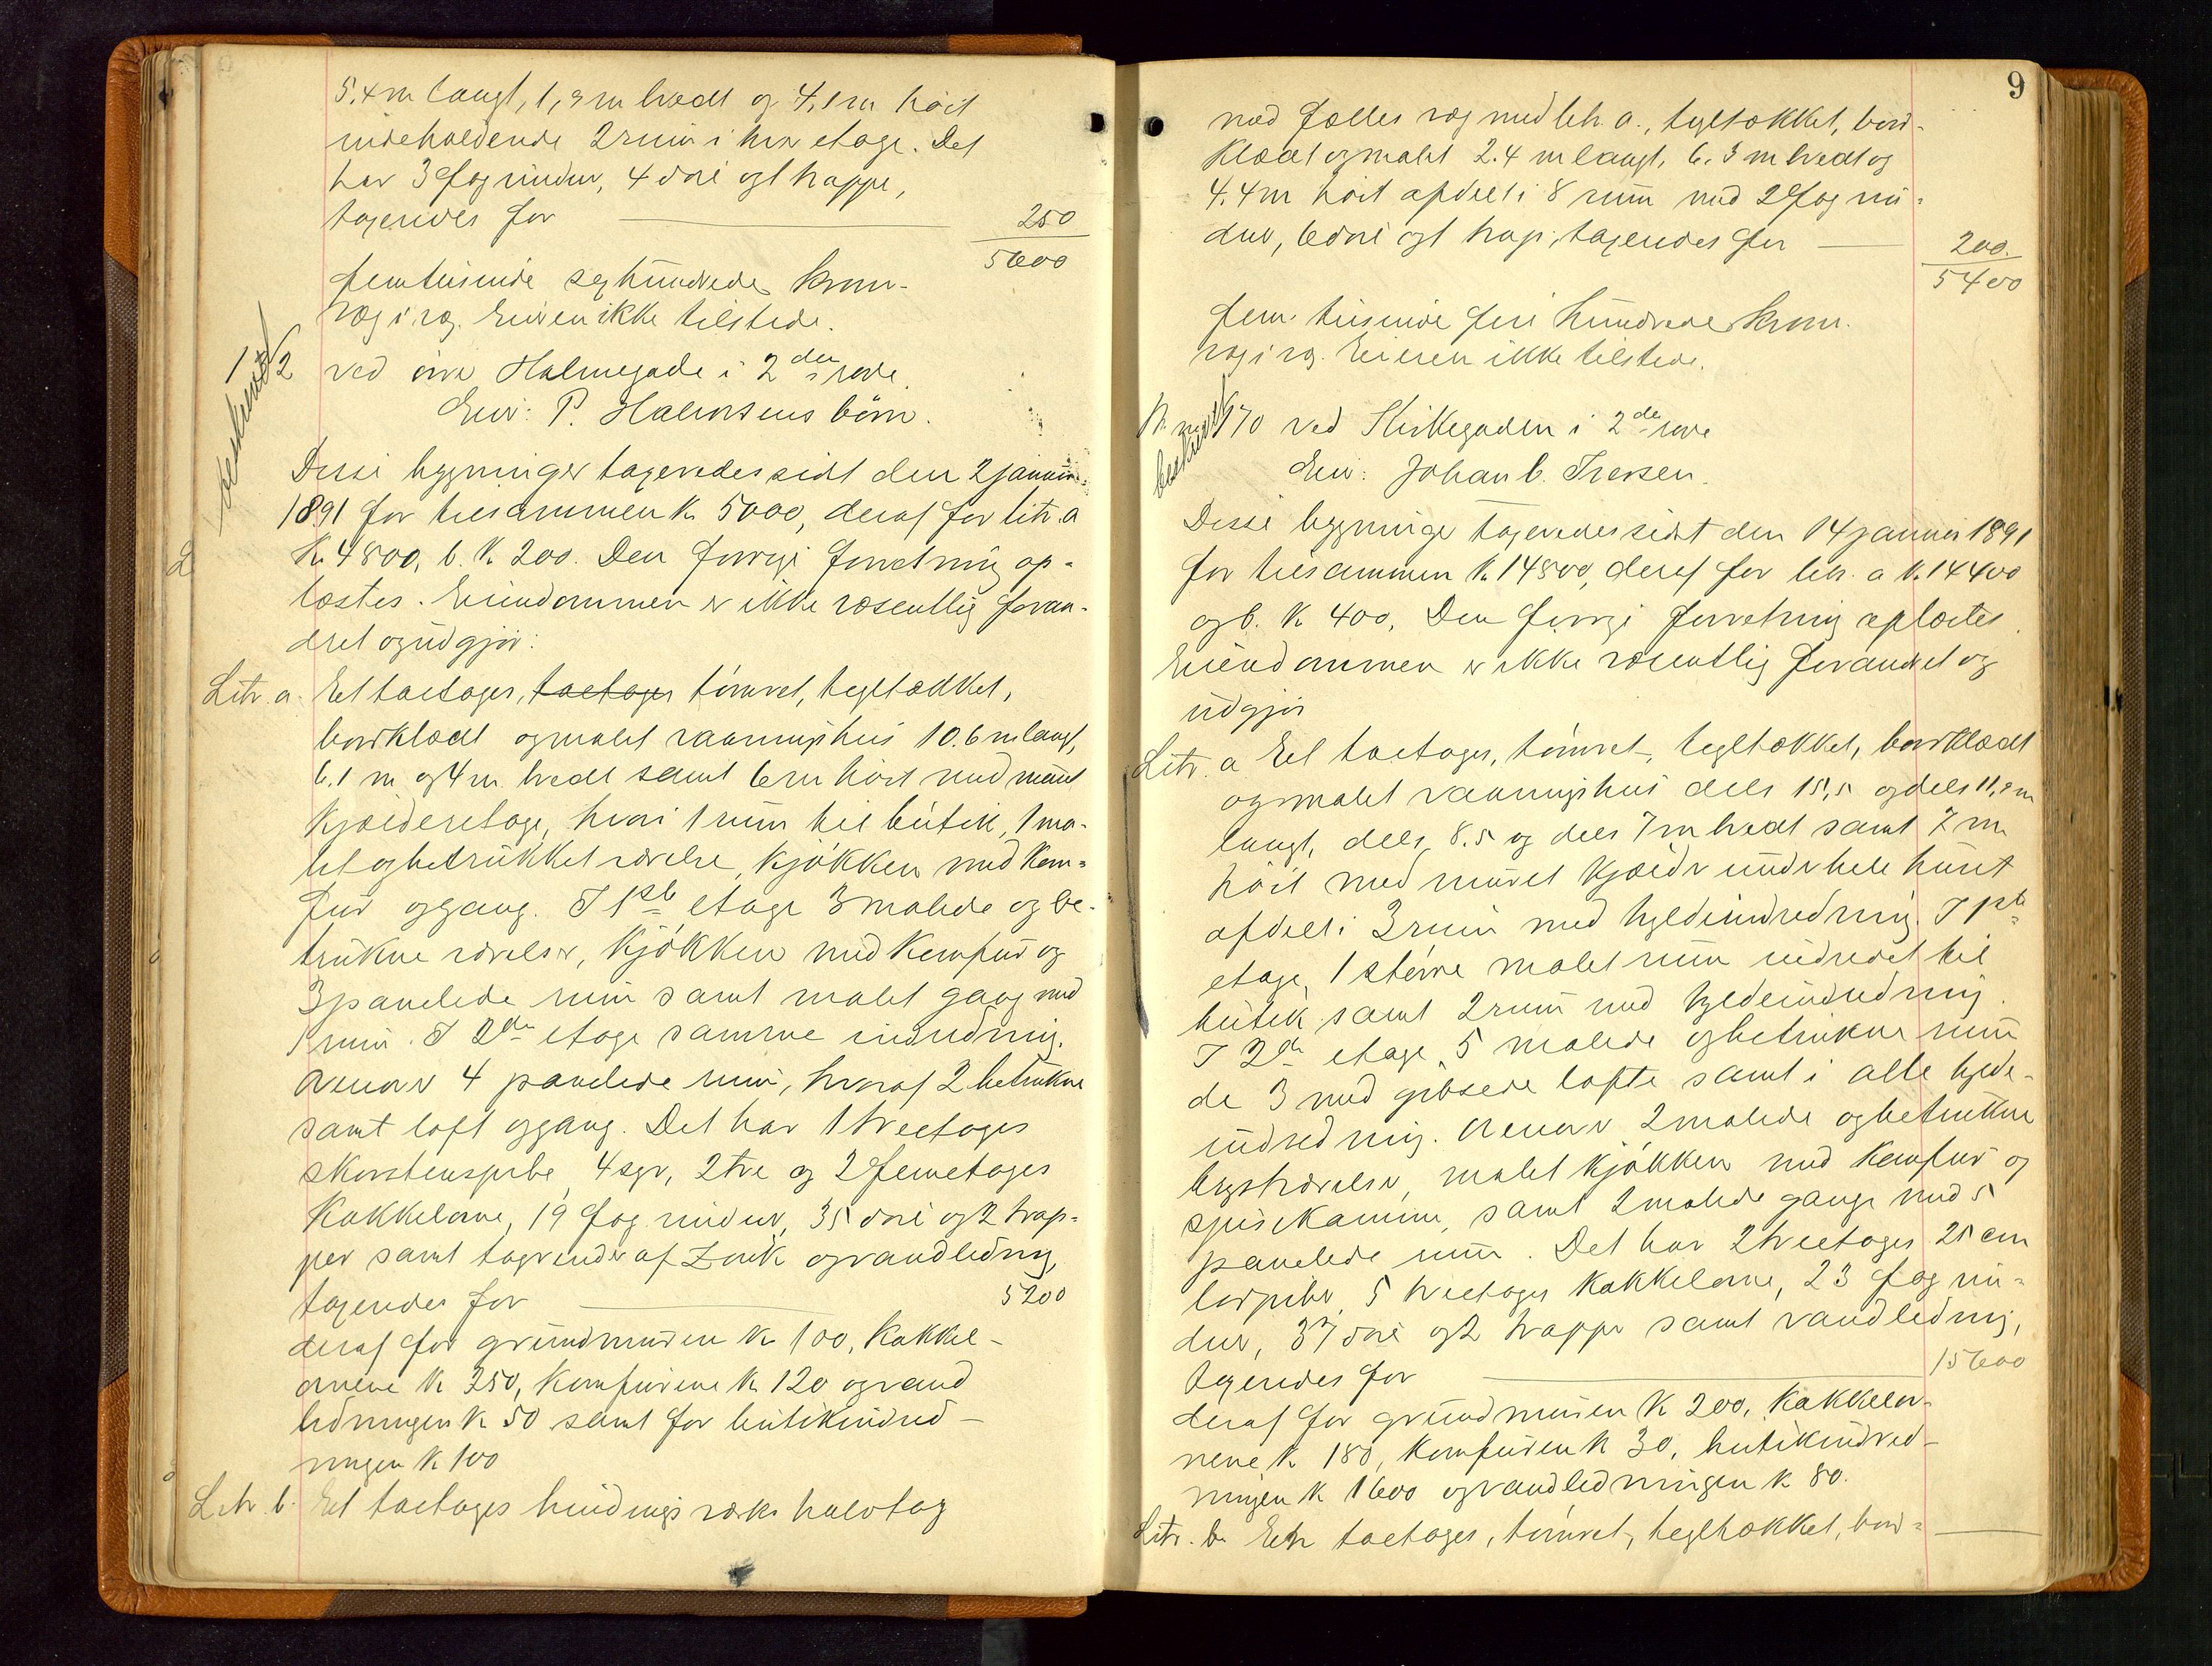 5.4 m langt, 1,9 m bredt og 4,1 m höit
indeholdende 2 rum i hver etage. Det
har 3 fag vinduer, 4 döre og 1 trappe,
taxeredes for 250
5600
femtusinde sexhundrede kroner
væg i væg. Eieren ikke tilstede.
172 ved övre Holmegade i 2den rode.
beskrevet
Eier: P. Halvorsens börn.
Disse bygninger taxeredes sidst den 2 januar
1891 for tilsammen K. 5000, deraf for litr. a
K. 4800, b. K. 200. Den forrige forretning op-
læstes. Eiendommen er ikke væsentlig foran-
dret og udgjör:
Litr. a. Eet toetages, toetages tömret, tegltækket,
bordklædt og malet vaaningshus 10.6 m langt,
6.1 m og 4 m bredt samt 6 m höit med muret
kjælderetage, hvori 1 rum til butik, 1 ma-
let og betrukket værelse, kjökken med kom-
fur og gang. I 1ste etage 3 malede og be-
trukne værelser, kjökken med komfur og
3 panelede rum samt malet gang med
1 rum. I 2den etage samme indredning.
Ovenover 4 panelede rum, hvoraf 2 betrukne
samt loft og gang. Det har 1 treetages
skorstenspibe, 4 sex, 2 tre og 2 femetages
kakkelovne, 19 fag vinduer, 35 döre og 2 trap-
per samt tagrender af zink og vandledning,
taxeredes for 5200
deraf for grundmuren K 100, kakkel-
ovnene K 250, komfurene K 120 og vand
ledningen K 50 samt for butikindred-
ningen K 100
Litr. b. Et toetages bindingsværks halvtag
9
med fælles væg med litr. a., tegltækket, bord-
klædt og malet 2.4 m langt, 6.3 m bredt og
4.4 m höit afdelt i 8 rum med 2 fag vin-
duer, 6 döre og 1 trap, taxeredes for 200.
5400
fem tusinde fire hundrede kroner.
væg i væg. Eieren ikke tilstede.
170 ved Kirkegaden i 2den rode
beskrevet
Eier: Johan C. Iversen.
Disse bygninger taxeredes sidst den 14 januar 1891
for tilsammen K. 14800, deraf for litr. a K. 14400
og b. K 400. Den forrige forretning oplæstes.
Eiendommen er ikke væsentlig forandret og
udgjör
Litr. a Eet toetages, tömret, tegltækket, bordklædt
og malet vaaningshus dels 15,5 og dels 11,2 m
langt, dels 8.5 og dels 7 m bredt samt 7 m
höit med muret kjælder under hele huset
afdelt i 3 rum med hyldeindredning. I 1ste
etage, 1 större malet rum indredet til
butik samt 2 rum med hyldeindredning.
I 2den etage 5 malede og betrukne rum
de 3 med gibsede lofte samt i alle hylde-
indredning. Ovenover 2 malede og betrukne
kvistværelser, malet kjökken med komfur og
spisekammer, samt 2 malede gange med 5
panelede rum. Det har 2 treetages 25 cm
lodpiber, 5 treetages kakkelovne, 23 fag vin-
duer, 37 döre og 2 trapper samt vandledning,
taxeredes for 15600
deraf for grundmuren K 200, kakkelov-
nene K. 180, komfuren K 30, butikindred-
ningen K 1600 og vandledningen K 80.
Litr. b. Et toetages, tömret, tegltækket, bord-